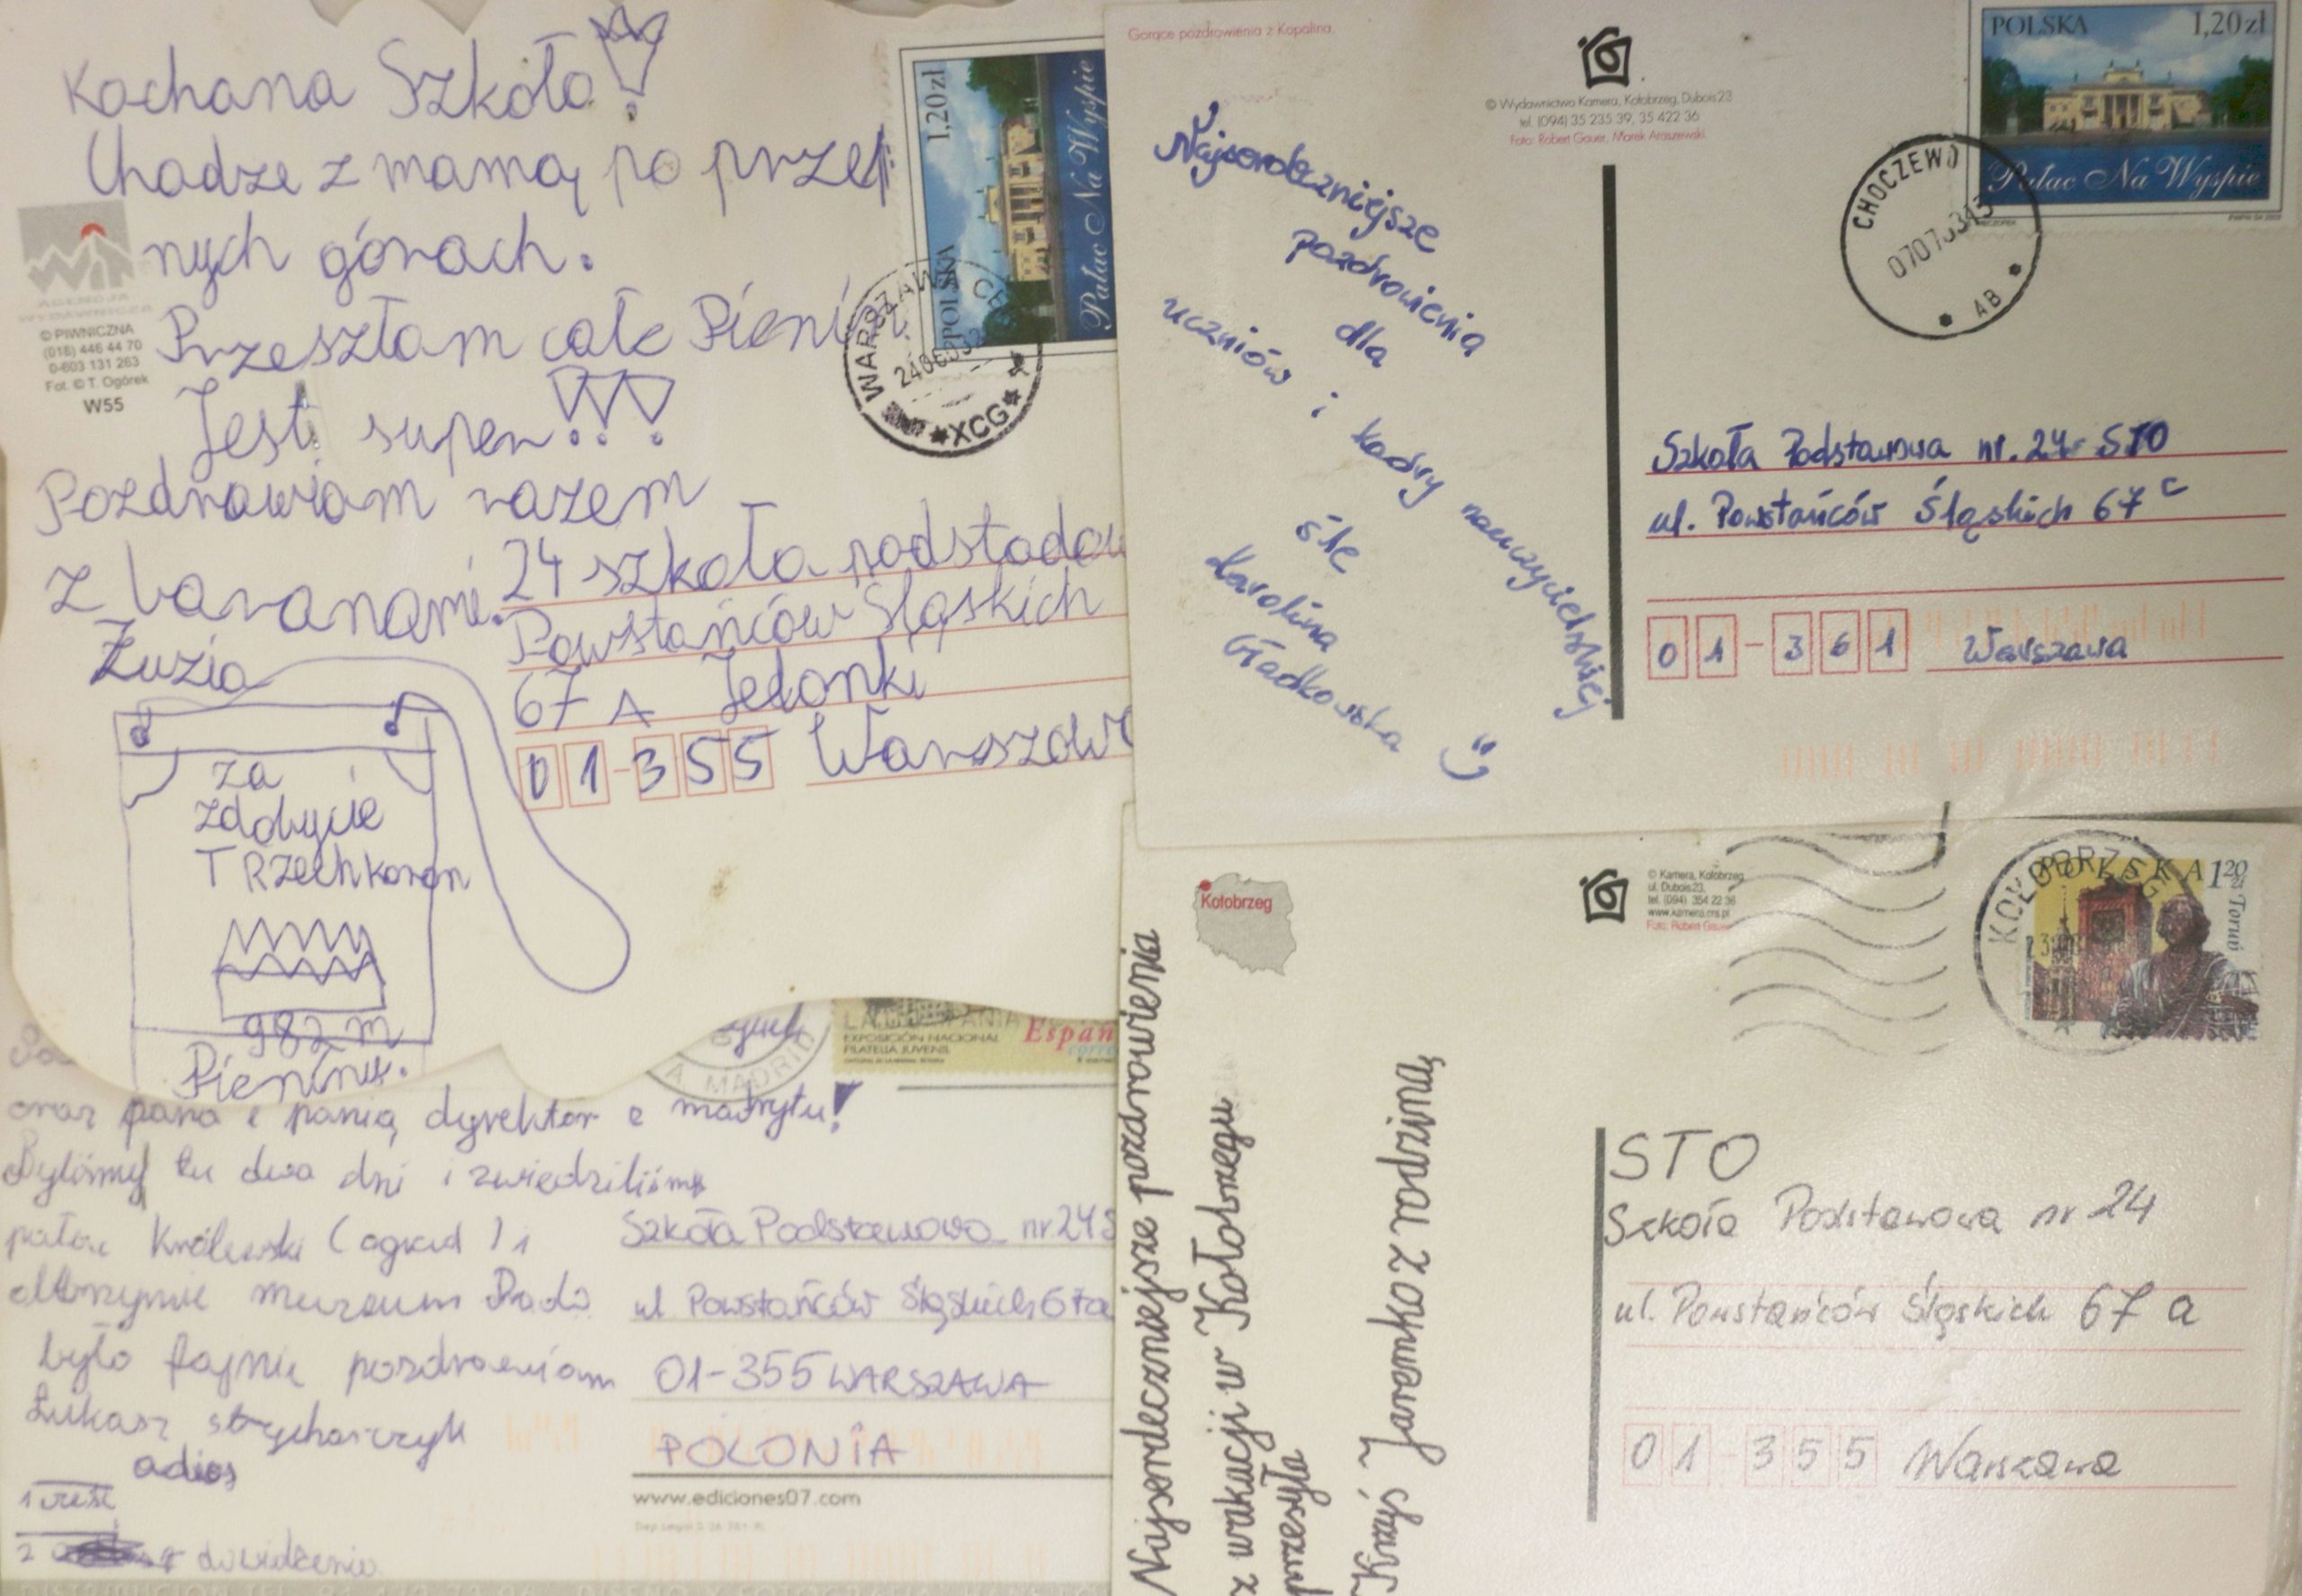 Kochana Szkoło!
Chodze z mamą po przep
nych górach.
Przeszłam całe Pieni
Jest super!!!
Pozdrawiam razem
z baranami.
Zuzia
WiT
AGENCJA
WYDAWNICZA
© PIWNICZNA
(018) 446 44 70
0-603 131 263
Fot. © T. Ogórek
W55
1,20zł
POLSKA
Pałac Na Wyspie
WARSZAWA CE
XCG
24 szkoła podstadow
Powstańców Śląskich
67 A Jelonki
01-355 Warszow
Za
zdobycie
TRzech koron
982 m
Pieniny.
Gorące pozdrowienia z Kopalina.
© Wydawnictwo Kamera, Kołobrzeg, Dubois23
tel. (094) 35 235 39, 35 422 36
Foto: Robert Gauer, Marek Ataszewski.
POLSKA 1,20zł
Pałac Na Wyspie
CHOCZEWO
AB
Najserdeczniejsze
pozdrowienia
dla
uczniów i kadry nauczycielskiej
śle
Karolina
Gładkowska
Szkoła Podstawowa nr. 24 STO
ul. Powstańców Śląskich 67 c
01-361 Warszawa
oraz pana i panią dyrektor z madrytu!
Byliśmy tu dwa dni i zwiedziliśmy
pałac Królewski (ogród) i
olbrzymie muzeum Prado
było fajnie pozdrawiam
Łukasz strycharczyk
adios
1 cześć
2 dowidzenia
A MADRID
EXPOSICIÓN NACIONAL
FILATELIA JUVENIL
Españ
corre
Szkoła Podstawowa nr 24 S
ul Powstańców Śląskich 67a
01-355 WARSZAWA
POLONIA
www.ediciones07.com
Kołobrzeg
© Kamera, Kołobrzeg
ul. Dubois23,
tel. (094) 354 22 36
www.kamera.cns.pl
Foto: Robert Gauer
KOŁOBRZEG
POLSKA 1 20 zł
Toruń
Najserdeczniejsze pozdrowienia
z wakacji w Kołobrzegu
przesyła
Krzyś Jaremko z rodziną
STO
Szkoła Podstawowa nr 24
ul. Powstańców Śląskich 67 a
01-355 Warszawa